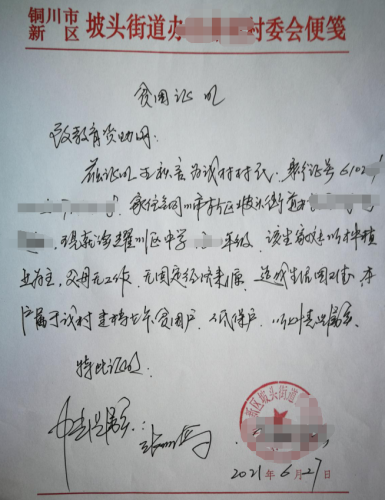 铜川市新区 坡头街道办 村委会便笺
贫困证明
致教育资助网:
兹证明 为我村村民 身份证号6102
家住铜川市新区坡头街道
现就读耀州区中学 年级 该生家庭以种植
业为主,父母无工作,无固定经济来源,造成生活困难,本
户属于我村建档 贫困户、低保户 以上情况属实
特此证明
情况属实:
新区坡头街道
2021年6月27日